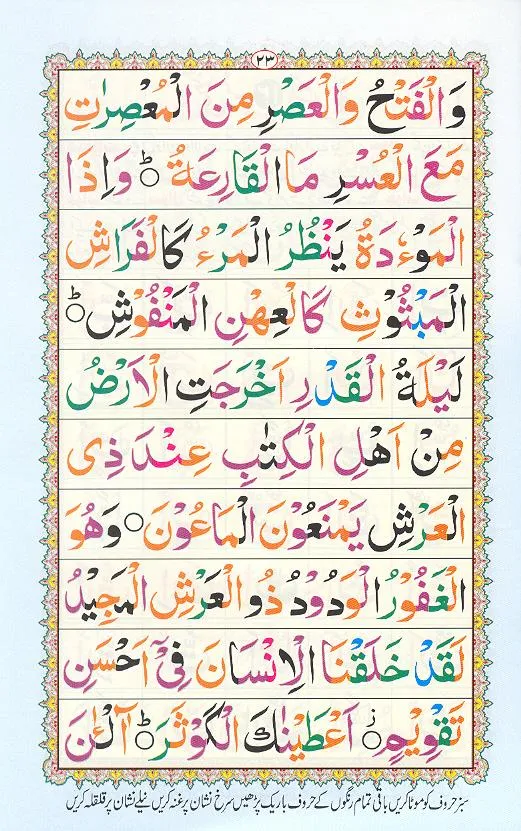 ٢٣
وَالْفَتْحُ وَالْعَصْرِ مِنَ الْمُعْصِرٰتِ
مَعَ الْعُسْرِ مَا الْقَارِعَةُ ○ؕ وَاِذَا
الْمَوْءٗدَةُ يَنْظُرُ الْمَرْءُ كَالْفَرَاشِ
الْمَبْثُوْثِ كَالْعِهْنِ الْمَنْفُوْشِ ○ؕ
لَيْلَةُ الْقَدْرِ اَخْرَجَتِ الْاَرْضُ
مِنْ اَهْلِ الْكِتٰبِ عِنْدَ ذِى
الْعَرْشِ يَمْنَعُوْنَ الْمَاعُوْنَ ○ وَهُوَ
الْغَفُوْرُ الْوَدُوْدُ ذُو الْعَرْشِ الْمَجِيْدُ
لَقَدْ خَلَقْنَا الْاِنْسَانَ فِىْٓ اَحْسَنِ
تَقْوِيْمٍ ○ز اَعْطَيْنٰكَ الْكَوْثَرَ ○ؕ آلْـٰٔنَ
سبز حروف کو موٹا کریں باقی تمام رنگوں کے حروف باریک پڑھیں سرخ نشان پر غنہ کریں نیلے نشان پر قلقلہ کریں